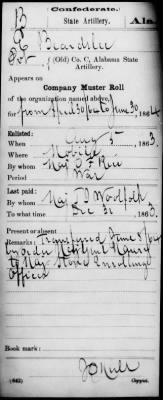 Confederate.
B
State Artillery.
Ala
Beardslee
Pvt
(Old) Co. C, Alabama State
Artillery.
Appears on
Company Muster Roll
of the organization named above,
for from April 30 to June 30, 1864
Enlisted:
When Aug 5, 1863
Where Mobile
By whom Maj Rice
Period War
Last paid:
By whom Maj Woodfolk
To what time Dec 31, 1863
Present or absent
Remarks: Transferred June
by order
to Maj Stone Enrolling
Officer
Book mark:
(642)
Copyist.